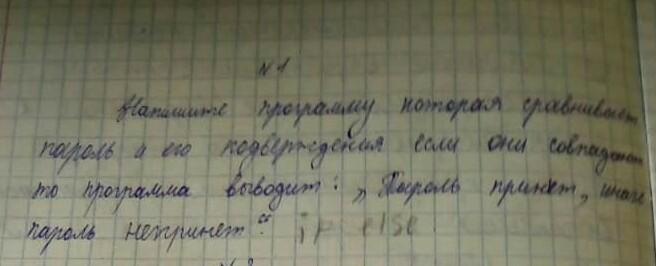 №1
Напишите программу которая сравнивает
пароль и его подверждения если они совпадают
то программа выводит: „Пароль принет, иначе
пароль непринет“ if else